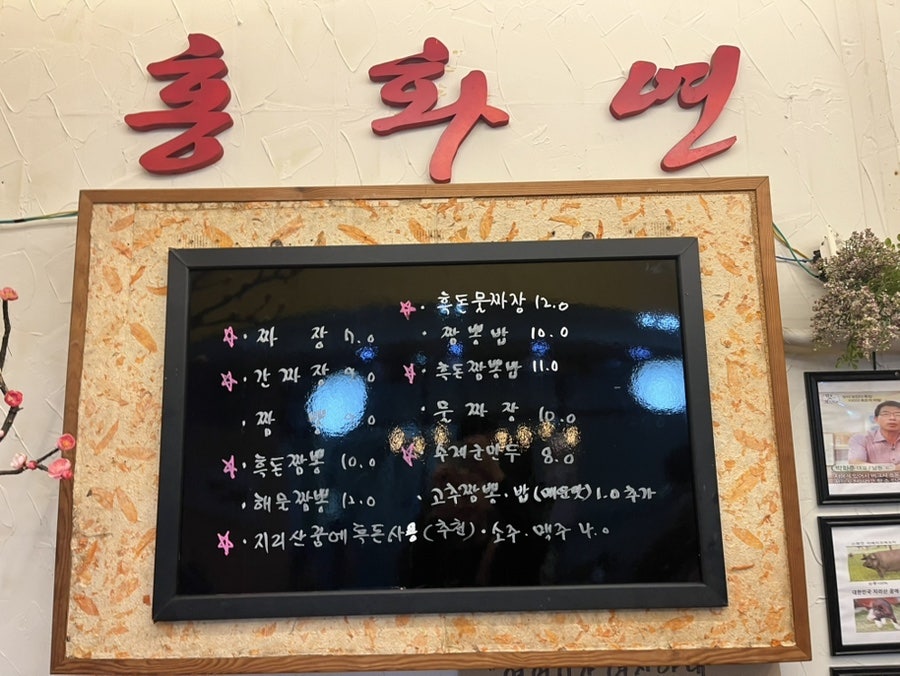 홍화면
☆·짜 장 7.0
☆·간짜장 .0
·짬 .0
☆·흑돈짬뽕 10.0
·해물짬뽕 12.0
☆·흑돈물짜장 12.0
·짬뽕밥 10.0
☆·흑돈짬뽕밥 11.0
·물 짜 장 10.0
☆수제군만두 8.0
·고추짬뽕·밥(매운맛)1.0 추가
☆·지리산 흑돈사용(추천)·소주·맥주 4.0
대한민국 지리산